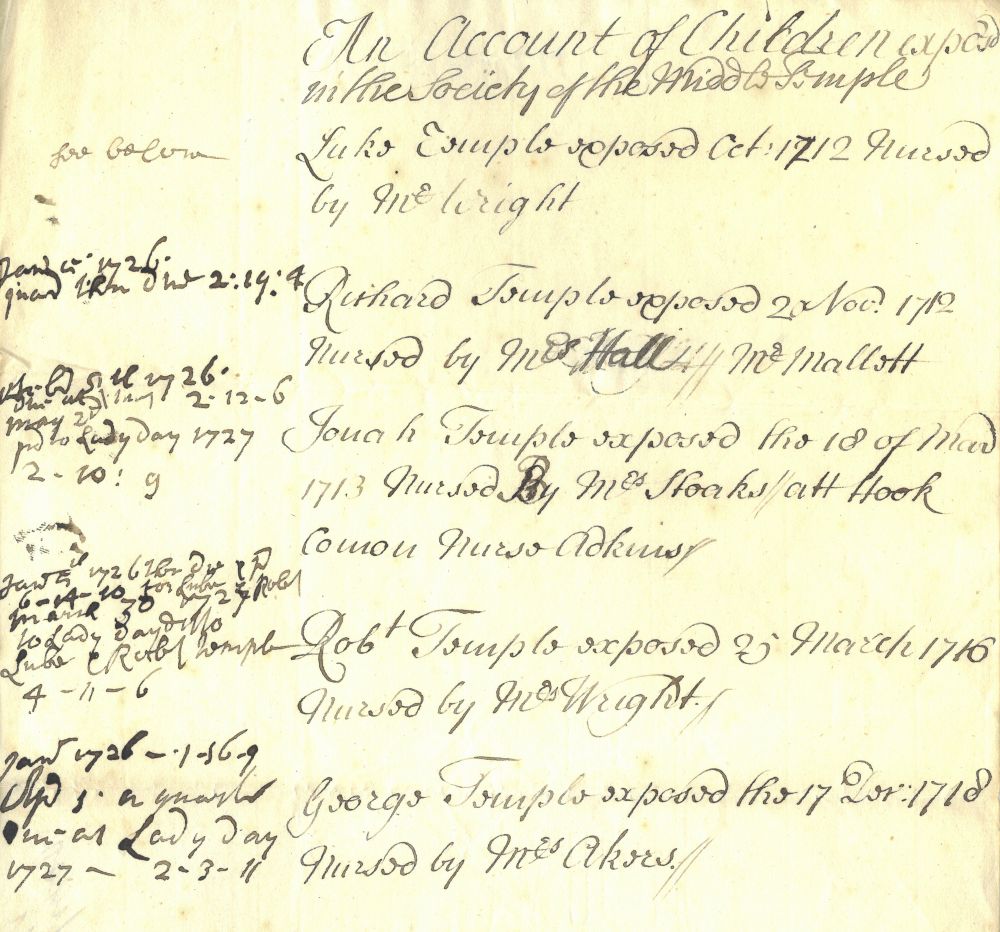 An Account of Children exposd
in the Society of the Middle Temple
see below
Luke Temple exposed Oct: 1712 Nursed
by Mrs Wright
Janr 1726
quar then due 2:19:4
Richard Temple exposed 2d Novr. 1712
Nursed by Mrs Hall // Mrs Mallett
1726
2-12-6
may
pd to Lady day 1727
2-10:9
Jonah Temple exposed the 18 of Mar
1713 Nursed By Mrs Stoaks // att Hook
Comon Nurse Adkins //
Janr 1726 then due
6-14-10 for Luke & Robt
march 1727
to Lady day ditto
Luke & Robt Temple
4-11-6
Robt Temple exposed 25 March 1716
Nursed by Mrs Wright //
Janr 1726 - 1-16-9
a quarter
due at Lady day
1727 - 2-3-11
George Temple exposed the 17 Decr: 1718
Nursed by Mrs Akers //